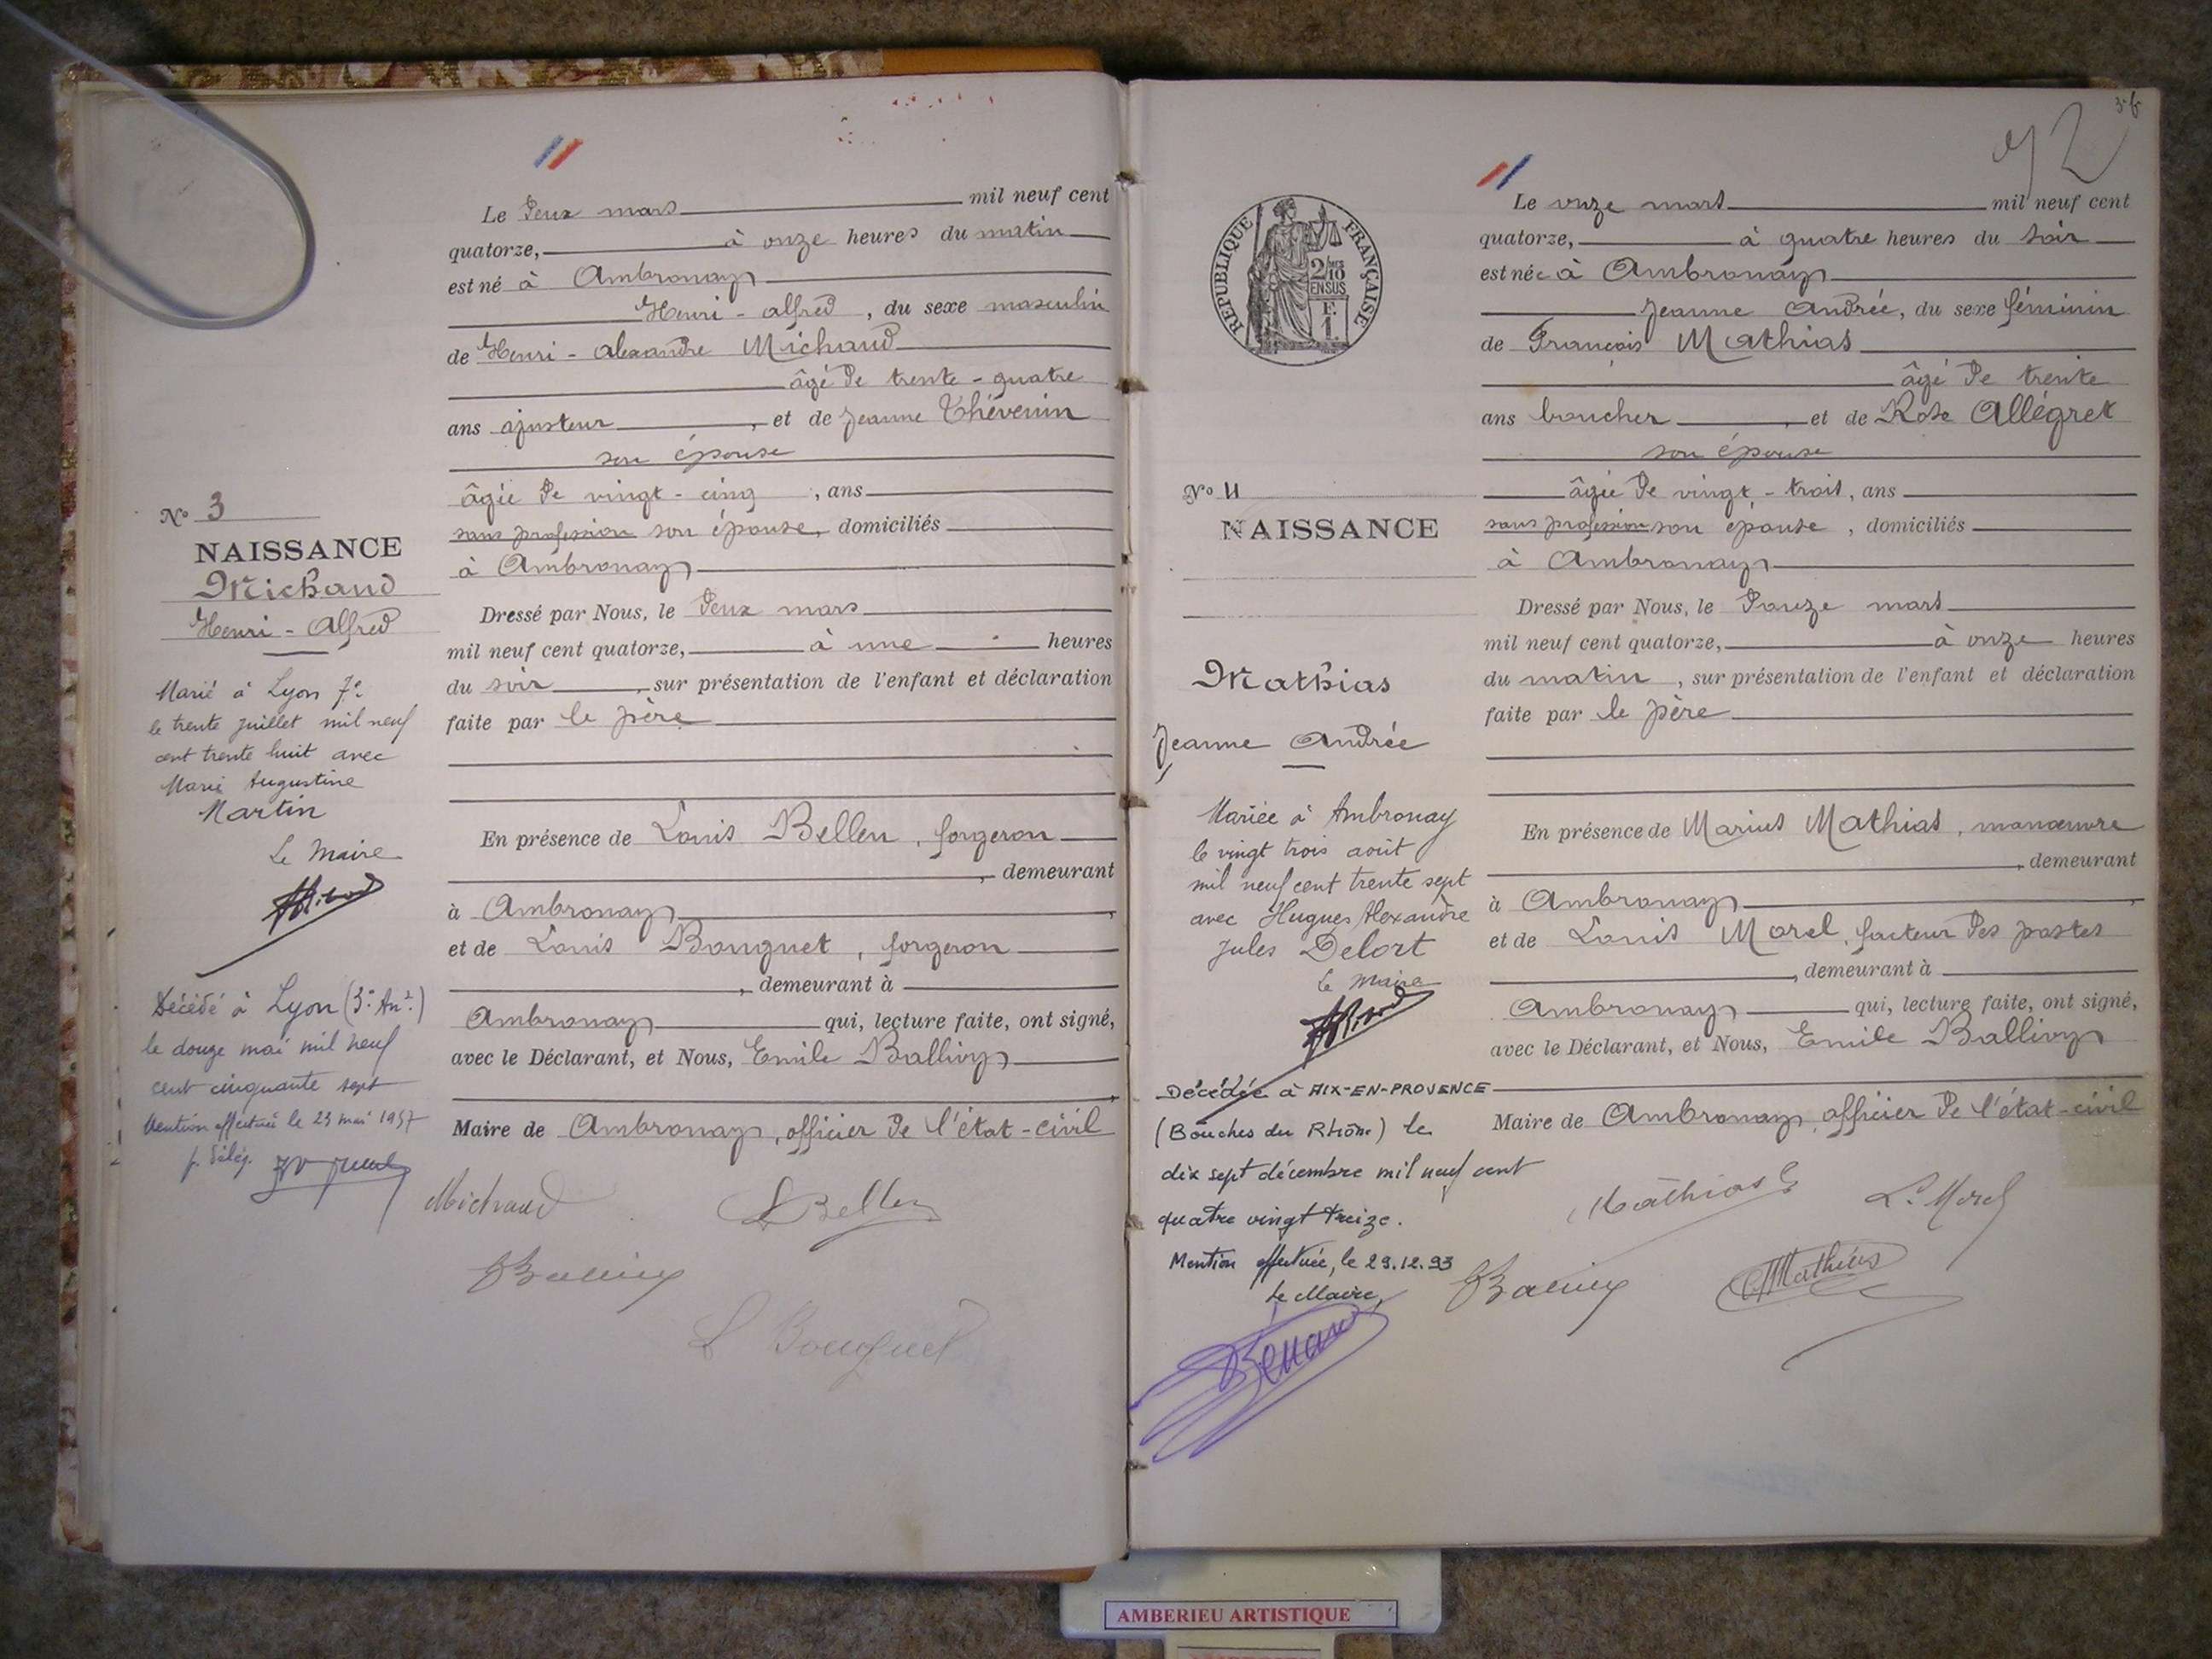 Le deux mars mil neuf cent
quatorze, à onze heures du matin
est né à Ambronay
Henri - Alfred, du sexe masculin
de Henri - Alexandre Michaud
âgé de trente - quatre
ans ajusteur, et de Jeanne Thévenin
son épouse
âgée de vingt - cinq, ans
sans profession son épouse, domiciliés
à Ambronay
Dressé par Nous, le deux mars
mil neuf cent quatorze, à une heures
du soir, sur présentation de l'enfant et déclaration
faite par le père
En présence de Louis Bellen, forgeron
, demeurant
à Ambronay,
et de Louis Bouguet, forgeron
, demeurant à
Ambronay qui, lecture faite, ont signé,
avec le Déclarant, et Nous, Emile Ballivy
Maire de Ambronay, officier de l'état-civil
Michaud
L Bellen
L Bouguet
No 3
NAISSANCE
Michaud
Henri - Alfred
Marié à Lyon 7e
le trente juillet mil neuf
cent trente huit avec
Marie Augustine
Martin
Le Maire
Décédé à Lyon (3e Art)
le douze mai mil neuf
cent cinquante sept
Mention effectuée le 23 mai 1957
42
RÉPUBLIQUE FRANÇAISE
2/10
EN SUS
F.
1.
Le onze mars mil neuf cent
quatorze, à quatre heures du soir
est née à Ambronay
Jeanne Andrée, du sexe féminin
de François Mathias
âgé de trente
ans boucher, et de Rose Allégret
son épouse
âgée de vingt - trois, ans
sans profession son épouse, domiciliés
à Ambronay
Dressé par Nous, le douze mars
mil neuf cent quatorze, à onze heures
du matin, sur présentation de l'enfant et déclaration
faite par le père
En présence de Marius Mathias, manœuvre
, demeurant
à Ambronay,
et de Louis Morel, facteur des postes
, demeurant à
Ambronay qui, lecture faite, ont signé,
avec le Déclarant, et Nous, Emile Ballivy
Maire de Ambronay, officier de l'état-civil
Mathias
L. Morel
Mathias
No 4
NAISSANCE
Mathias
Jeanne Andrée
Mariée à Ambronay
le vingt trois août
mil neuf cent trente sept
avec Hugues Alexandre
Jules Delort
Le Maire
Décédée à AIX-EN-PROVENCE
(Bouches du Rhône) le
dix sept décembre mil neuf cent
quatre vingt treize.
Mention effectuée, le 29.12.93
Le Maire,
AMBERIEU ARTISTIQUE